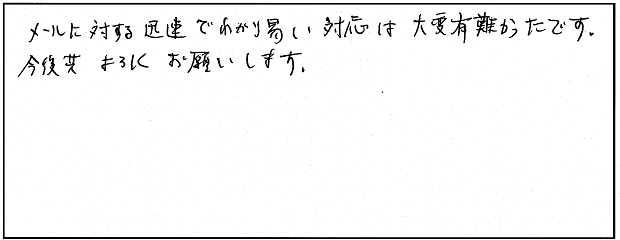 メールに対する迅速でわかり易い対応は大変有難かったです。
今後共よろしくお願いします。